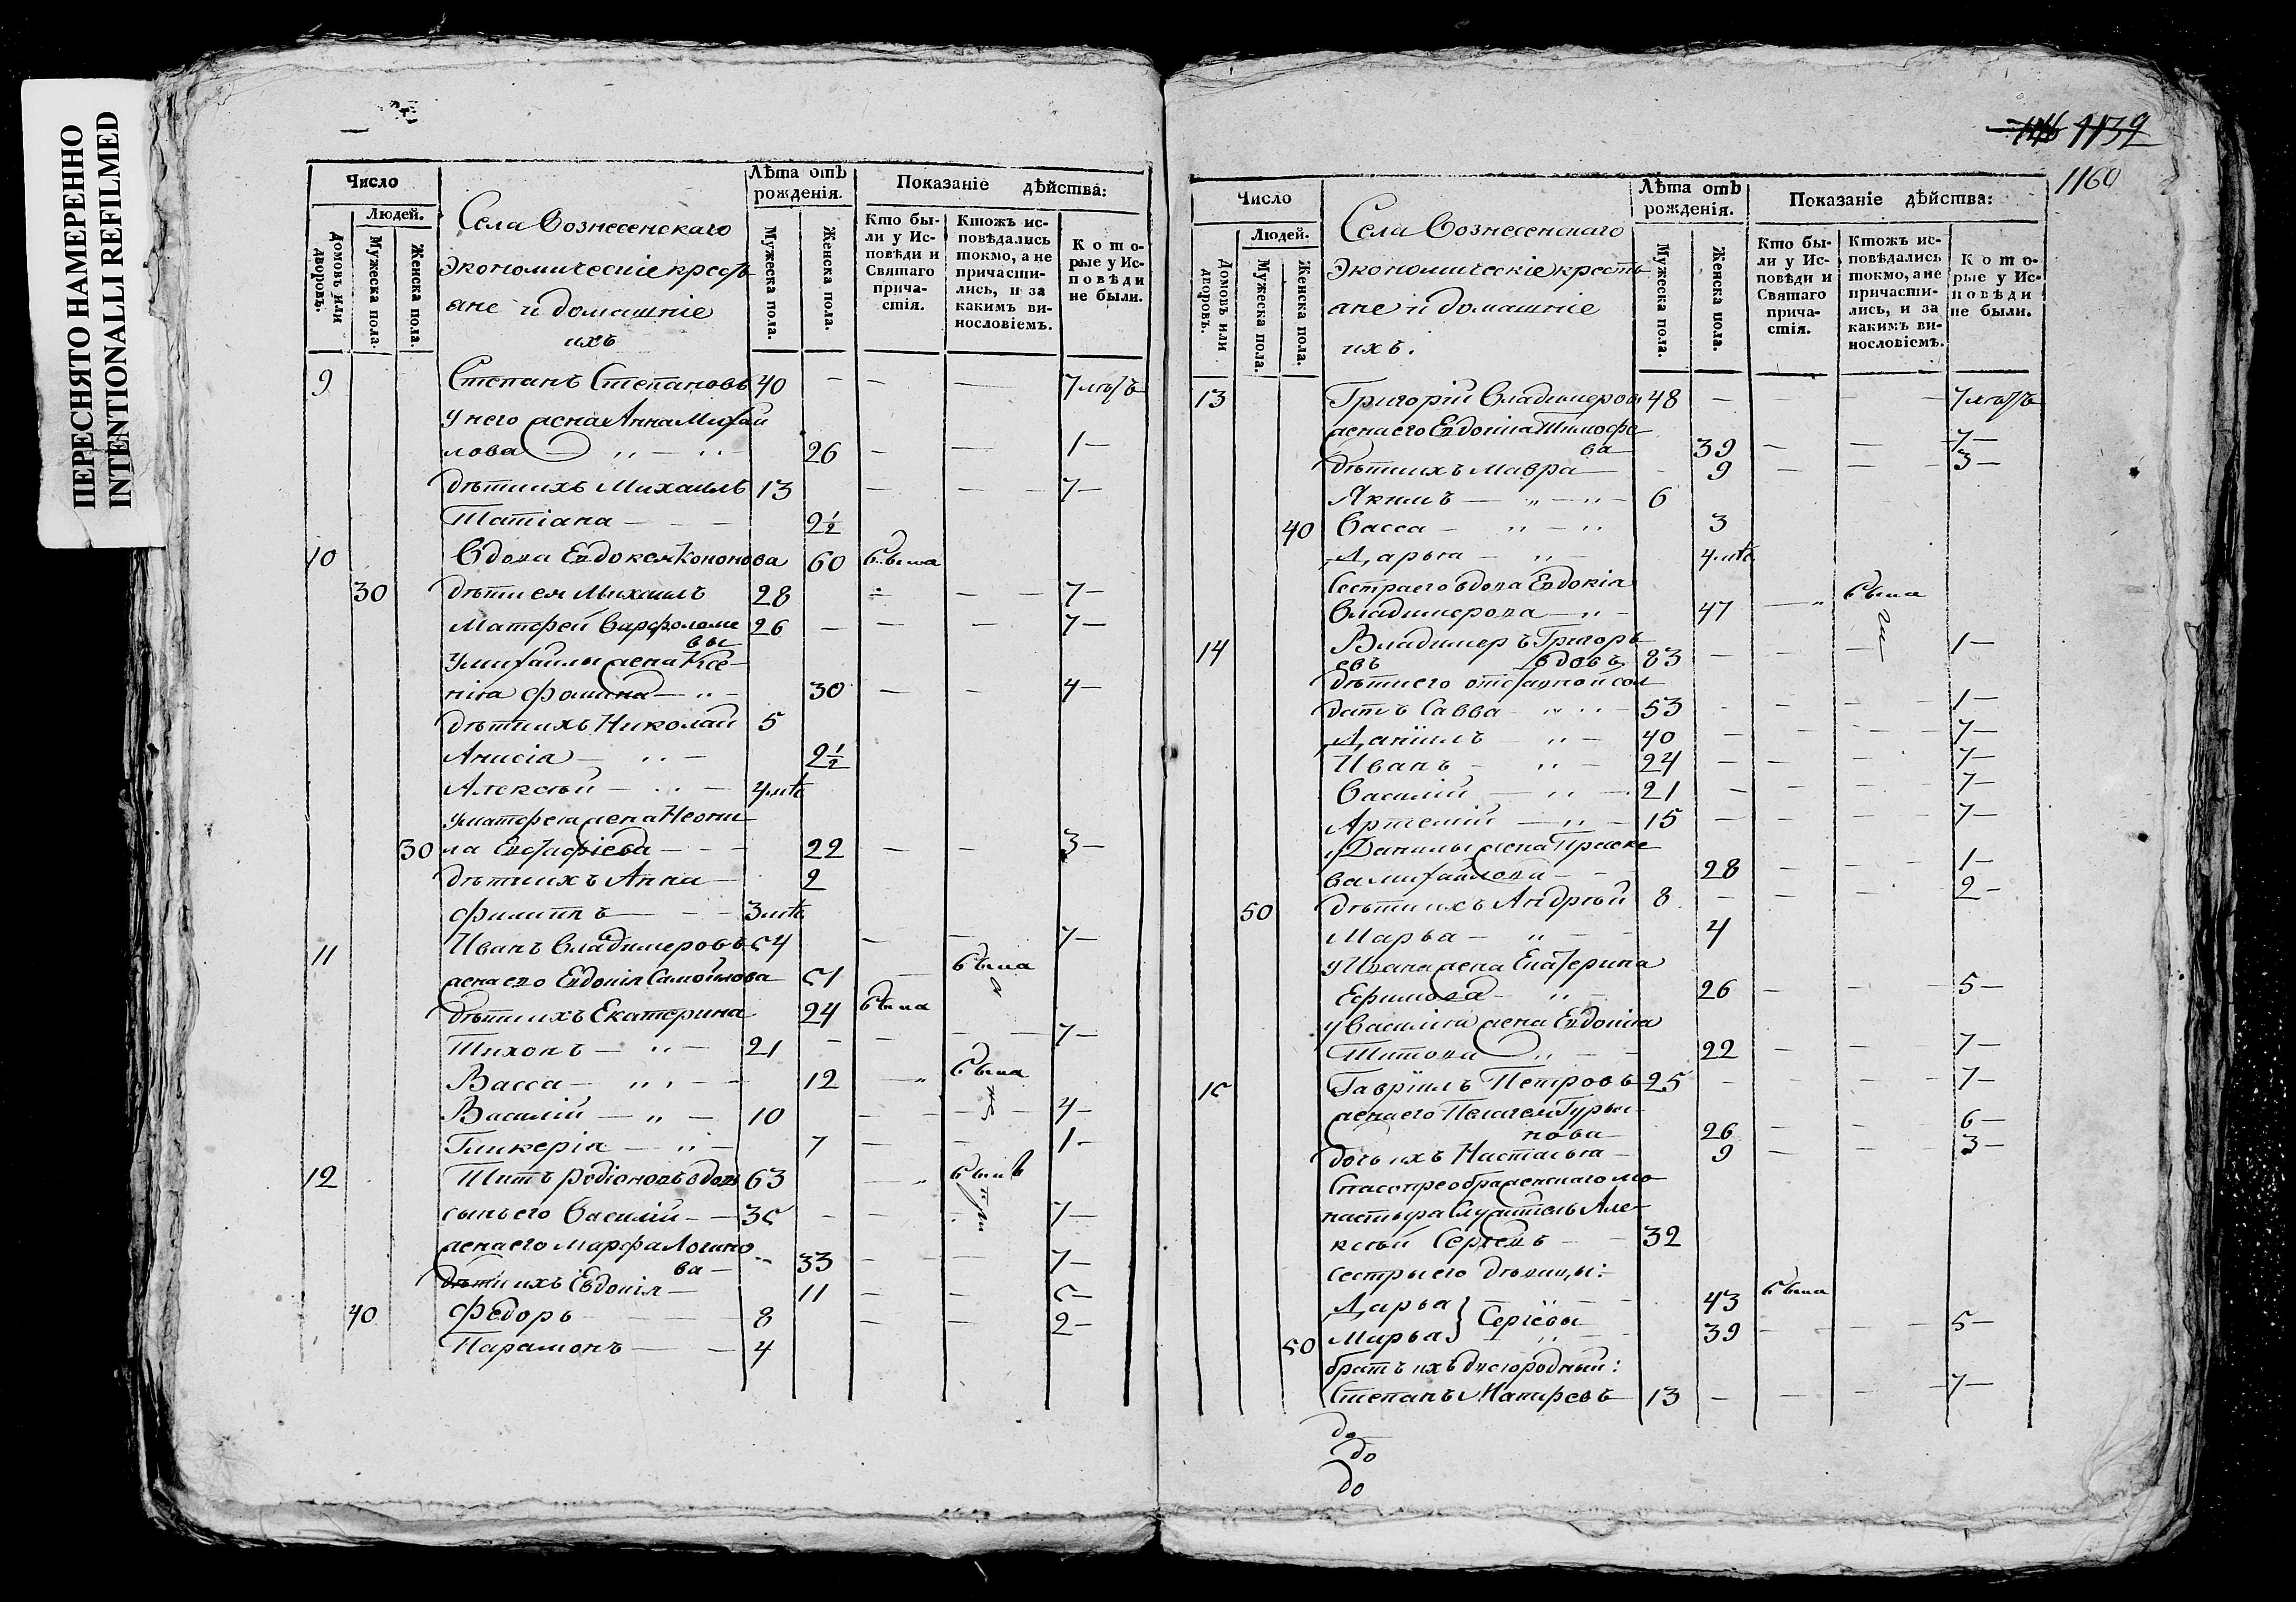 ПЕРЕСНЯТО НАМЕРЕННО
INTENTIONALLI REFILMED
Число
Людей.
Домовъ или дворовъ.
Мужеска пола.
Женска пола.
Села Вознесенскаго
экономическіе кресть
яне и домашніе
ихъ
Лѣта отъ рожденія.
Мужеска пола.
Женска пола.
Показаніе дѣйства:
Кто бы-
ли у Ис-
повѣди и
Святаго
прича-
стія.
Ктожъ ис-
повѣдались
токмо, а не
причасти-
лись, и за
какимъ ви-
нословіемъ.
Кото-
рые у Ис-
повѣди
не были.
9 Степанъ Степановъ 40 — — — 7 лѣтъ
У него жена Анна Михай
лова 26 — — 1 —
дѣти ихъ Михаилъ 13 — — 7 —
Татіана 2½
10 Вдова Евдокея Кононова 60 была
30 дѣти ея Михаилъ 28 — — 7 —
Матфей Варфоломе 26 — — — 7 —
вы
У михайлы жена Ксе-
нія Фомина 30 — — 4 —
дѣти ихъ Николай 5
Анисія 2½
Алексѣй 4 мѣ
У матфея жена Неони
30 ла Евстафіева 22 — — 3 —
дѣти ихъ Анна 2
Филиппъ 3 мѣ
11 Иванъ Владимеровъ 54 — — 7 —
жена его Евдокія Самойлова 51 — была
дѣти ихъ Екатерина 24 была
Тихонъ 21 — — — 7 —
Васса 12 — была
Василій 10 — — 4 —
Гликерія 7 — — 1 —
12 Титъ Родіоновъ вдовъ 63 — былъ
сынъ его Василій 35 — — 7 —
жена его Марфа Логино
ва 33 — — 7 —
дѣти ихъ Евдокія 11 — — 5 —
40 Федоръ 8 — — 2 —
Парамонъ 4
1139
1160
Число
Людей.
Домовъ или дворовъ.
Мужеска пола.
Женска пола.
Села Вознесенскаго
экономическіе кресть
яне и домашніе
ихъ.
Лѣта отъ рожденія.
Мужеска пола.
Женска пола.
Показаніе дѣйства:
Кто бы-
ли у Ис-
повѣди и
Святаго
прича-
стія.
Ктожъ ис-
повѣдались
токмо, а не
причасти-
лись, и за
какимъ ви-
нословіемъ.
Кото-
рые у Ис-
повѣди
не были.
13 Григорій Владимеровъ 48 — — — 7 лѣтъ
жена его Евдокіа Тимофе
ва 39 — — 7 —
дѣти ихъ Мавра 9 — — 3 —
Якимъ 6
40 Васса 3
Дарья 4 мѣ
Сестра его вдова Евдокія
Владимерова 47 — была
14 Владимеръ Григорь
евъ вдовъ 83 — — — 1 —
дѣти его отставной сол
датъ Савва 53 — — — 1 —
Даніилъ 40 — — — 7 —
Иванъ 24 — — — 7 —
Василій 21 — — — 7 —
Артемій 15 — — — 7 —
у Данилы жена Праске
ва михайлова 28 — — 1 —
50 дѣти ихъ Андрей 8 — — — 2 —
Марья 4
у Ивана жена Екатерина
Ефимова 26 — — 5 —
у Василіа жена Евдокіа
Титова 22 — — 7 —
15 Гавріилъ Петровъ 25 — — — 7 —
жена его Пелагея Гурья
нова 26 — — 6 —
дочь ихъ Настасья 9 — — 3 —
Спасопреображенскаго мо
настыря Служитель Але-
ксѣй Сергеевъ 32
сестры его дѣвицы:
Дарья } Сергѣевы 43 была
50 Марья } 39 — — 5 —
братъ ихъ двоюродный:
Степанъ Матфеевъ 13 — — — 7 —
до
до
до